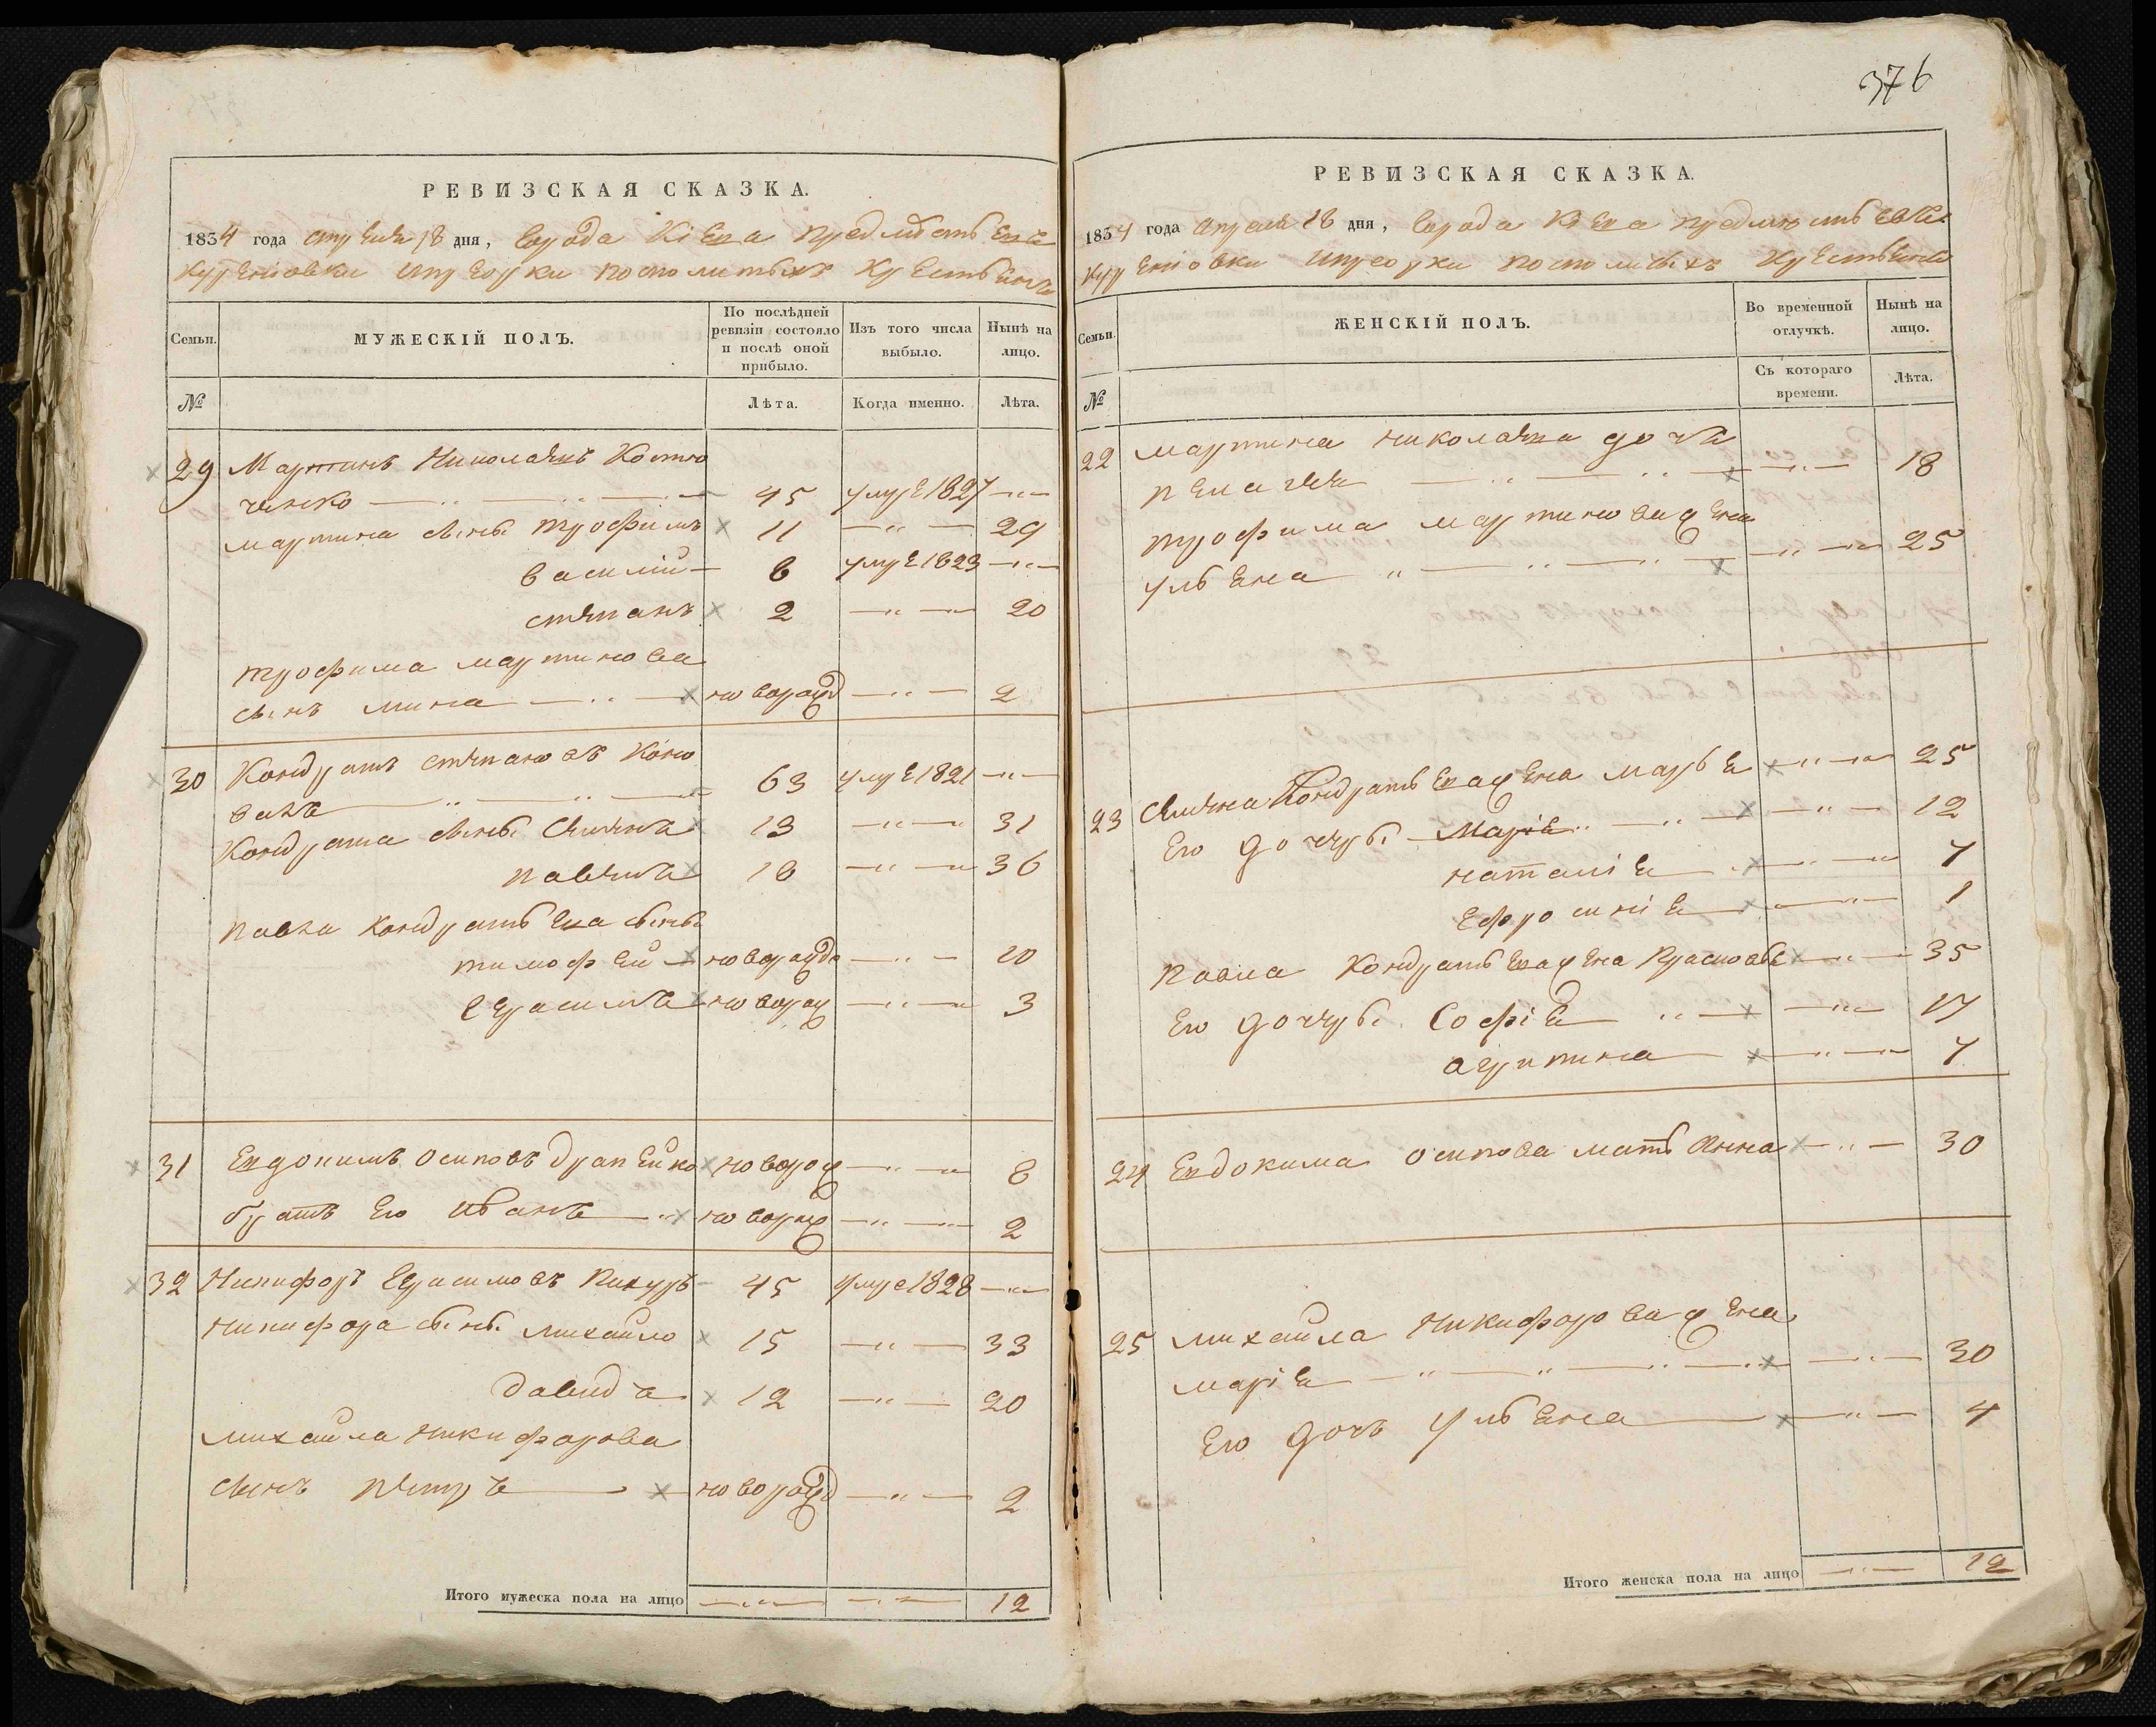 РЕВИЗСКАЯ СКАЗКА.
1834 года апреля 18 дня, города Кіева предмѣстьевъ
Куреніовки и Преорки посполитыхъ крестьянъ
Семьи. МУЖЕСКІЙ ПОЛЪ. По послѣдней ревизіи состояло и послѣ оной прибыло. Изъ того числа выбыло. Нынѣ на лицо.
№ Лѣта. Когда именно. Лѣта.
29 Мартинъ Николаевъ Костю
ченко 45 умре 1827
мартина сыны трофимъ 11 29
василій 6 умре 1823
степанъ 2 20
трофима мартинова
сынъ мина новорожд 2
30 Кондратъ степановъ Коно
валъ 63 умре 1821
Кондрата сыны Семенъ 13 31
павелъ 18 36
павла Кондратьева сыны
тимофей новорожде 10
Герасимъ новорож 3
31 Евдокимъ осиповъ драпейко новорож 8
братъ его иванъ новорож 2
32 Никифоръ Герасимовъ Пихуръ 45 умре 1828
Никифора сыны михайло 15 33
давидъ 12 20
михайла никифорова
сынъ петръ новорожд 2
Итого мужеска пола на лицо 12
376
РЕВИЗСКАЯ СКАЗКА.
1834 года апреля 18 дня, города Кіева предмѣстьевъ
Куреніовки и Преорки посполитыхъ крестьянъ
Семьи. ЖЕНСКІЙ ПОЛЪ. Во временной отлучкѣ. Нынѣ на лицо.
№ Съ котораго времени. Лѣта.
22 мартина николаева дочь
пелагея 18
трофима мартинова жена
ульяна 25
23 Семена Кондратьева жена марья 25
Его дочери Марія 12
наталія 7
Ефросинія 1
павла Кондратьева жена Прасковья 35
Его дочери Софія 17
агрипина 7
24 Евдокима осипова мать Анна 30
25 михайла никифорова жена
марія 30
Его дочь ульяна 4
Итого женска пола на лицо 12